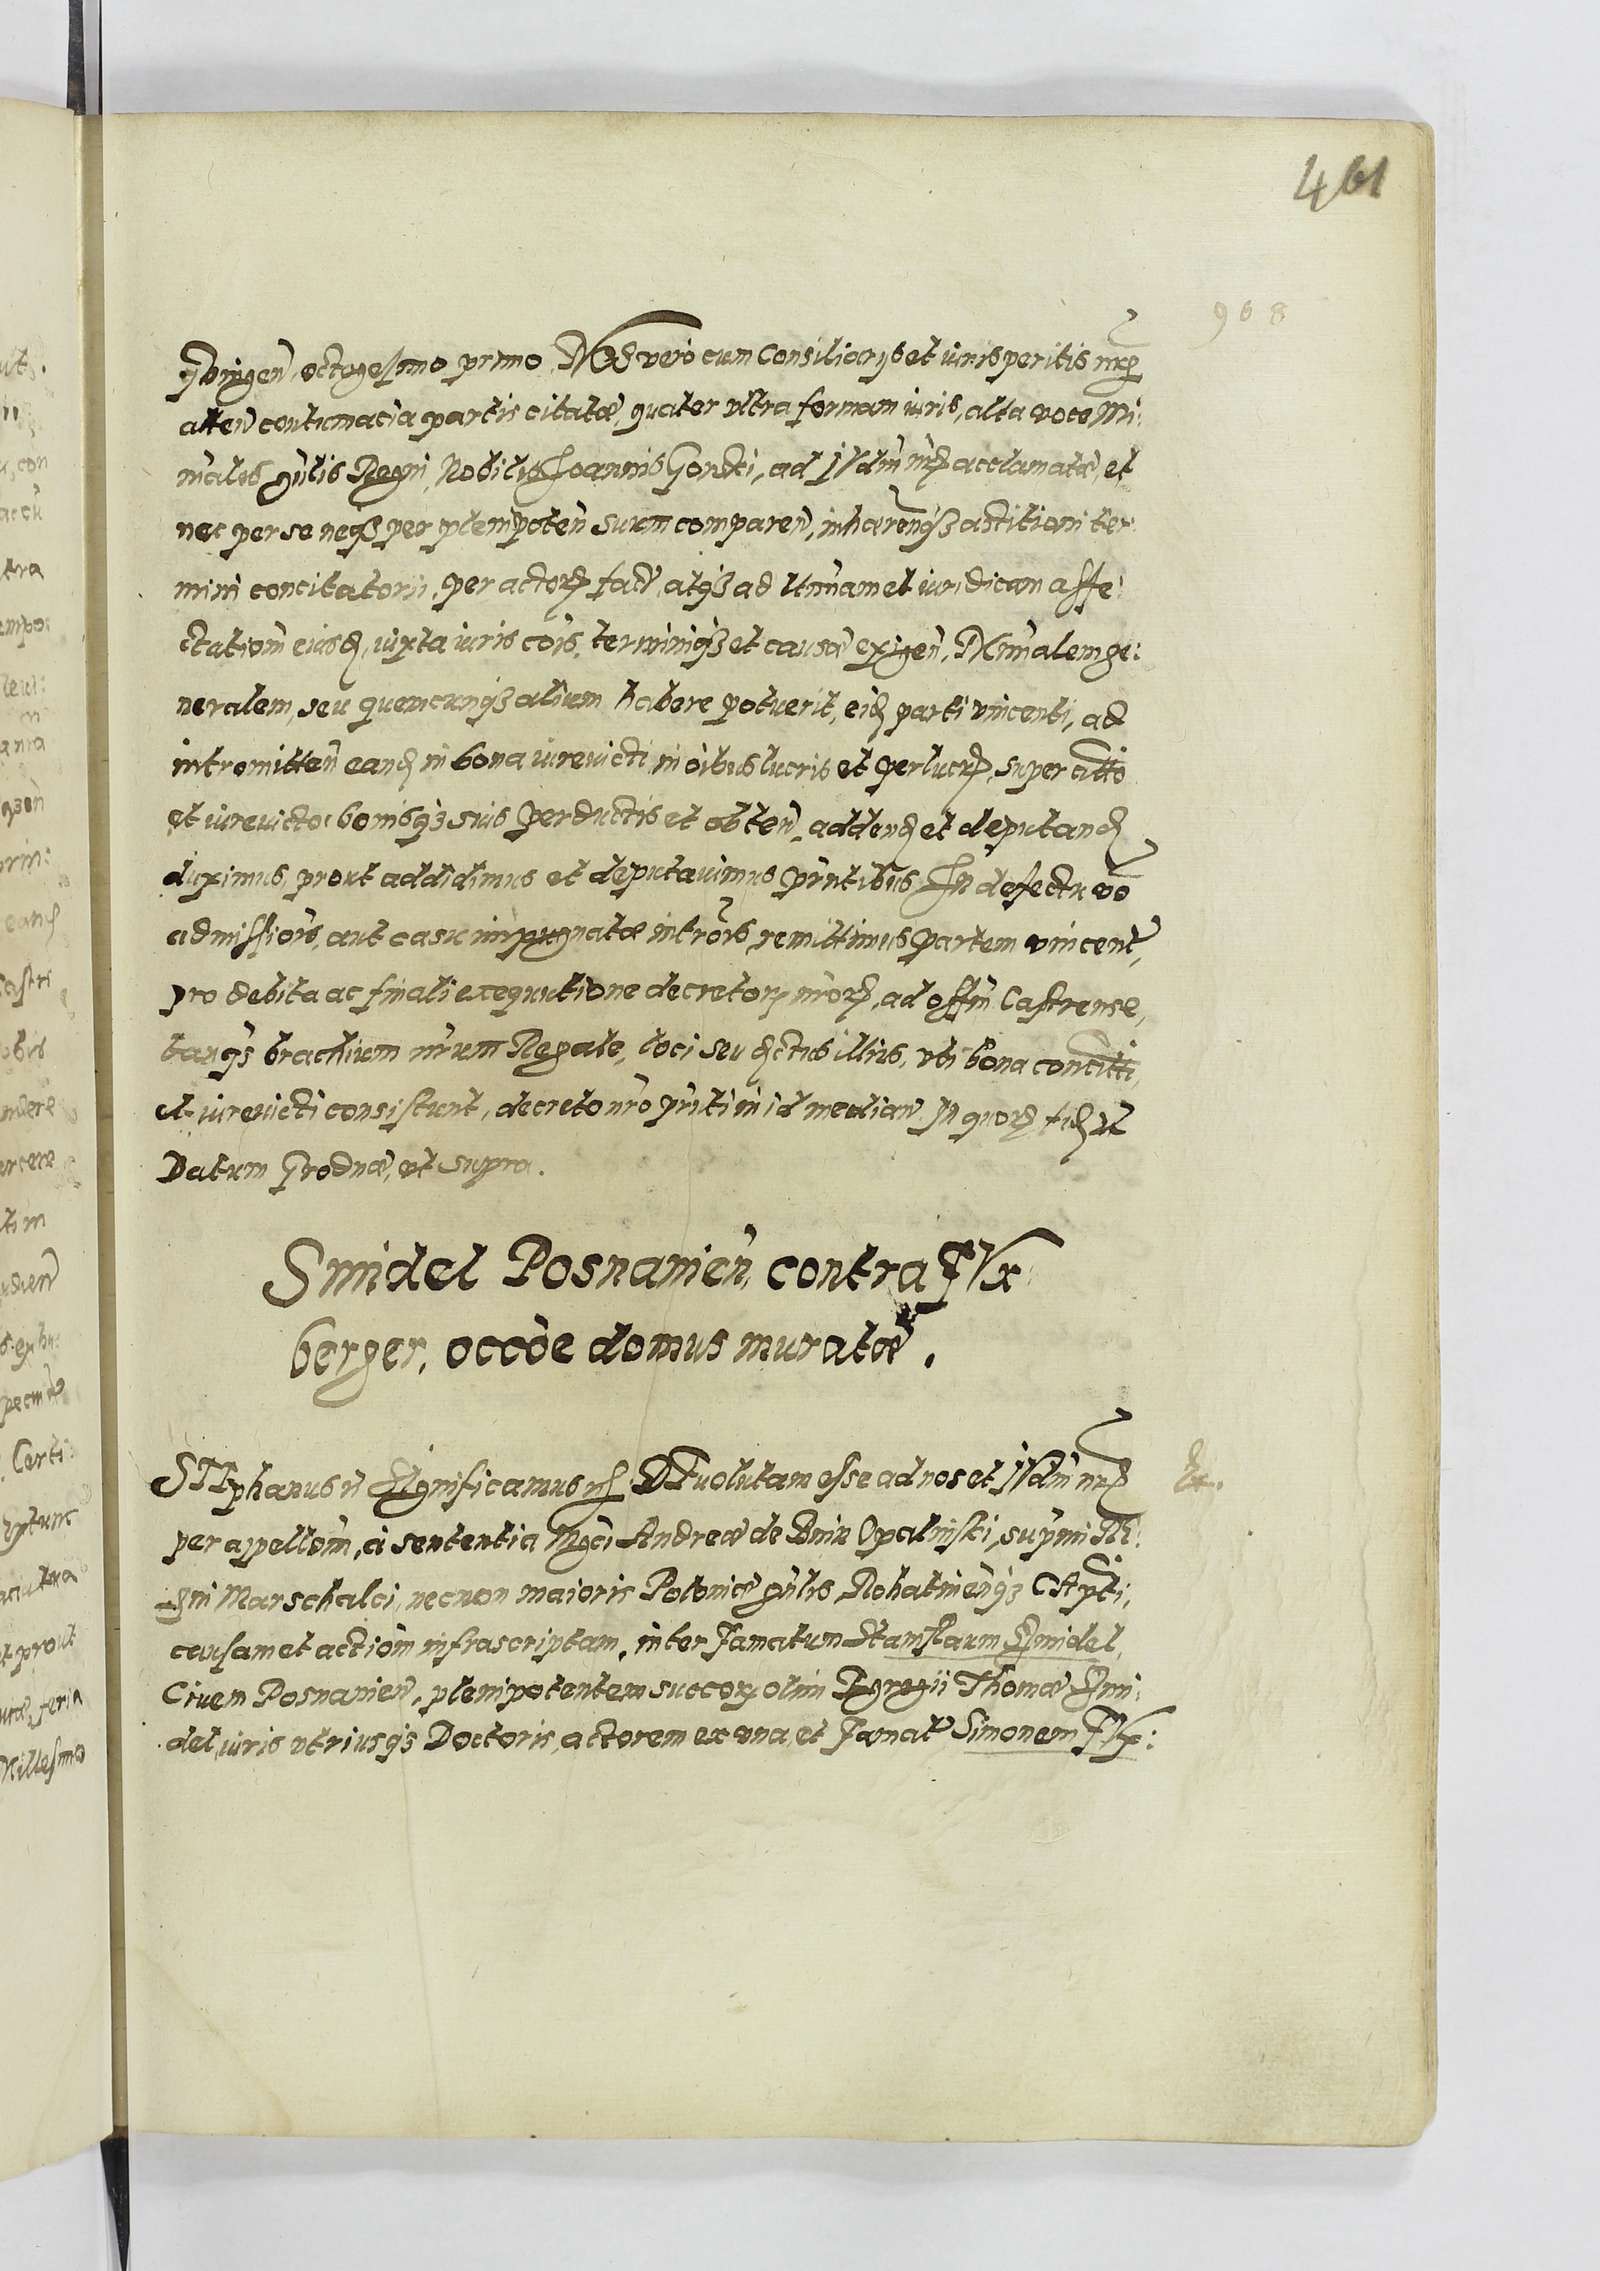 461
968
qbingen̄ octogesimo primo. NOS vero cum Consiliarijs et iurisperitis nr̄is
atten̄ contumacia partis citatæ, quater vltra formam iuris, alta voce Mi:
nr̄alis gn̄lis Regni, Nobilis Joannis Gorski, ad Iudm̄ nr̄m acclamatæ, et
nec per se neq3 per plenipoten̄ suum comparen̄, inhæren̄q3 astitioni ter:
mini concitatorij, per actorē fact̄, atq3 ad Itm̄am et iuridicam affe:
ctationē eiusd̄, iuxta iuris cōis, terminiq3 et causæ exigen̄, Mīn̄alem ge:
neralem, seu quemcunq3 alium habere potuerit, eid̄ parti vincenti, ad
intromitten̄ eand̄ in bona iurevicti in oībus lucris et perlucr̄, super citto
et iurevicto, bonisq3 suis perductis et obten̄, addend̄ et deputand̄
duximus, prout addidimus et deputauimus prn̄tibus. In defectu vō
admissiōis, aut casu impugnatæ intrōis, remittimus partem vincent̄,
pro debita ac finali exequutione decretorꝝ nr̄orꝝ, ad offm̄ Castrense,
tanq3 brachium nr̄um Regale, loci seu dictus illius, vbi bona concitti,
et iurevicti consistunt, decreto nr̄o prn̄ti in id median̄. In quorꝝ fid̄ et̄
Datum Grodnæ, vt supra.
Smidel Posnanien̄, contra Fux
berger, occōe domus muratæ.
STEphanus et̄ Significamus et̄. DEuolutam esse ad nos et Iudm̄ nr̄m
per appellōm̄, a sententia Mgc̄i Andreæ de Bnin Opalinski, supr̄mi Re:
gni Marschalci, necnon maioris Poloniæ gn̄lis, Rohatinen̄q3 CApt̄i,
causam et actiōm̄ infrascriptam, inter Famatum Stanislaum Smidel,
Ciuem Posnanien̄, plenipotentem succorꝝ olim Egregii Thomæ Smi:
del, iuris vtriusq3 Doctoris, actorem ex vna, et Famat̄ Simonem Fux: